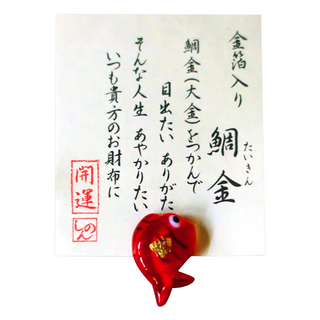 金箔入り
鯛金
たいきん
鯛金(大金)をつかんで
目出たい ありがた
そんな人生 あやかりたい
いつも貴方のお財布に
開運
しのん